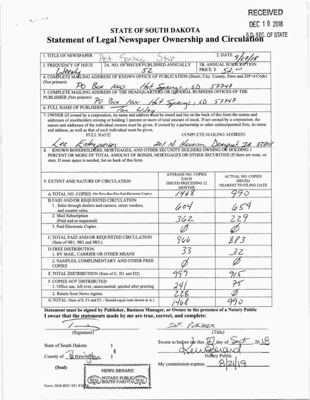 RECEIVED
DEC 10 2018
S.D. SEC. OF STATE
STATE OF SOUTH DAKOTA
Statement of Legal Newspaper Ownership and Circulation
1. TITLE OF NEWSPAPER
Hot Springs Star
2. DATE
3. FREQUENCY OF ISSUE
Weekly
3A. NO. OF ISSUES PUBLISHED ANNUALLY
52
3B. ANNUAL SUBSCRIPTION
PRICE $ 52.00
4. COMPLETE MAILING ADDRESS OF KNOWN OFFICE OF PUBLICATION (Street, City, County, State and ZIP+4 Code)
(Not printers)
PO Box Hot Springs, SD 57747
5. COMPLETE MAILING ADDRESS OF THE HEADQUARTERS OR GENERAL BUSINESS OFFICES OF THE
PUBLISHER (Not printers)
PO Box Hot Springs, SD 57747
6. FULL NAME OF PUBLISHER:
7. OWNER (If owned by a corporation, its name and address must be stated and list on the back of this form the names and
addresses of stockholders owning or holding 1 percent or more of total amount of stock. If not owned by a corporation, the
names and addresses of the individual owners must be given. If owned by a partnership or other unincorporated firm, its name
and address, as well as that of each individual must be given.
FULL NAME COMPLETE MAILING ADDRESS
Lee Enterprises 201 N Harrison, Davenport IA
8. KNOWN BONDHOLDERS, MORTGAGES, AND OTHER SECURITY HOLDERS OWNING OR HOLDING 1
PERCENT OR MORE OF TOTAL AMOUNT OF BONDS, MORTGAGES OR OTHER SECURITIES (If there are none, so
state. If more space is needed, list on back of this form.
9. EXTENT AND NATURE OF CIRCULATION
AVERAGE NO. COPIES
EACH
ISSUES PRECEDING 12
MONTHS
ACTUAL NO. COPIES
ISSUED
NEAREST TO FILING DATE
A. TOTAL NO. COPIES (Net Press Run Plus Paid Electronic Copies)
1468 990
B. PAID AND/OR REQUESTED CIRCULATION
1. Sales through dealers and carriers, street vendors,
and counter sales.
604 654
2. Mail Subscription
(Paid and/or requested)
362 229
3. Paid Electronic Copies
Ø Ø
C. TOTAL PAID AND/OR REQUESTED CIRCULATION
(Sum of 9B1, 9B2 and 9B3.)
966 883
D. FREE DISTRIBUTION
1. BY MAIL, CARRIER OR OTHER MEANS
33 32
2. SAMPLES, COMPLIMENTARY AND OTHER FREE
COPIES
Ø Ø
E. TOTAL DISTRIBUTION (Sum of C, D1 and D2)
999 915
F. COPIES NOT DISTRIBUTED
1. Office use, left over, unaccounted, spoiled after printing
241 75
2. Return from News Agents
228 Ø
G. TOTAL (Sum of E, F1 and F2 - Should equal total shown in A.)
1468 990
Statement must be signed by Publisher, Business Manager, or Owner in the presence of a Notary Public
I swear that the statements made by me are true, correct, and complete:
(Signature)
Int Publisher
(Title)
State of South Dakota
County of Pennington
Sworn to before me this day of Sept, 2018
Keri Berard
Notary Public
(Seal)
My commission expires:
KERRI BERARD
NOTARY PUBLIC
SOUTH DAKOTA